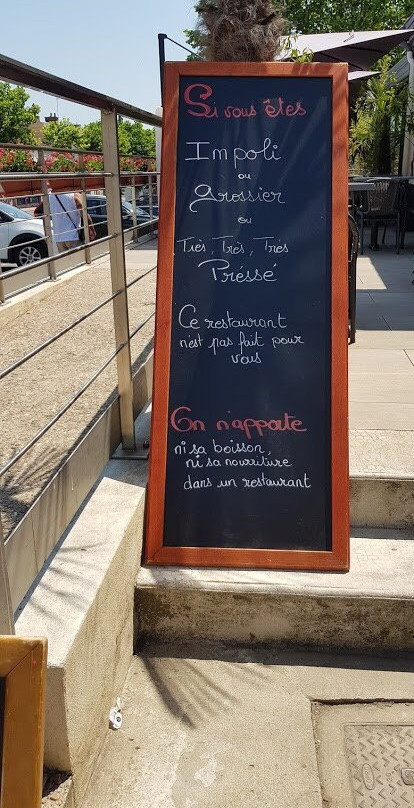 Si vous êtes
Impoli
ou
Grossier
ou
Très, Très, Très
Préssé
Ce restaurant
n'est pas fait pour
vous
On n'apporte
ni sa boisson,
ni sa nourriture
dans un restaurant